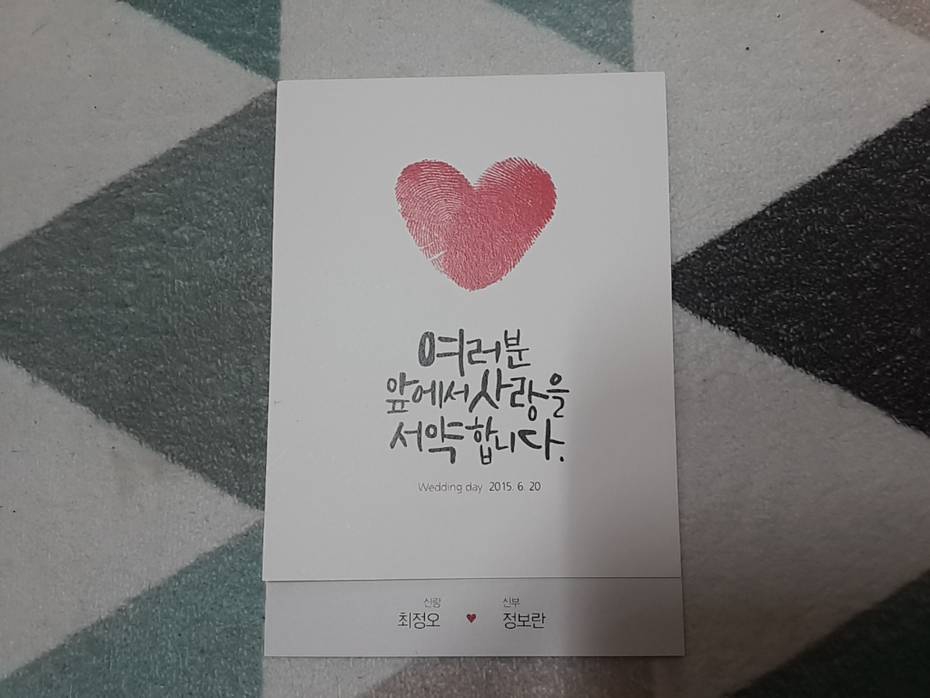 여러분
앞에서 사랑을
서약합니다.
Wedding day 2015. 6. 20
신랑 신부
최정오 ♥ 정보란